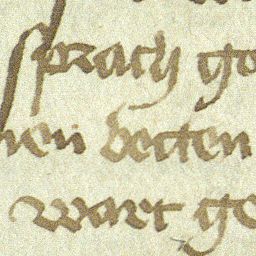 sprach go
nen betten
wart ge